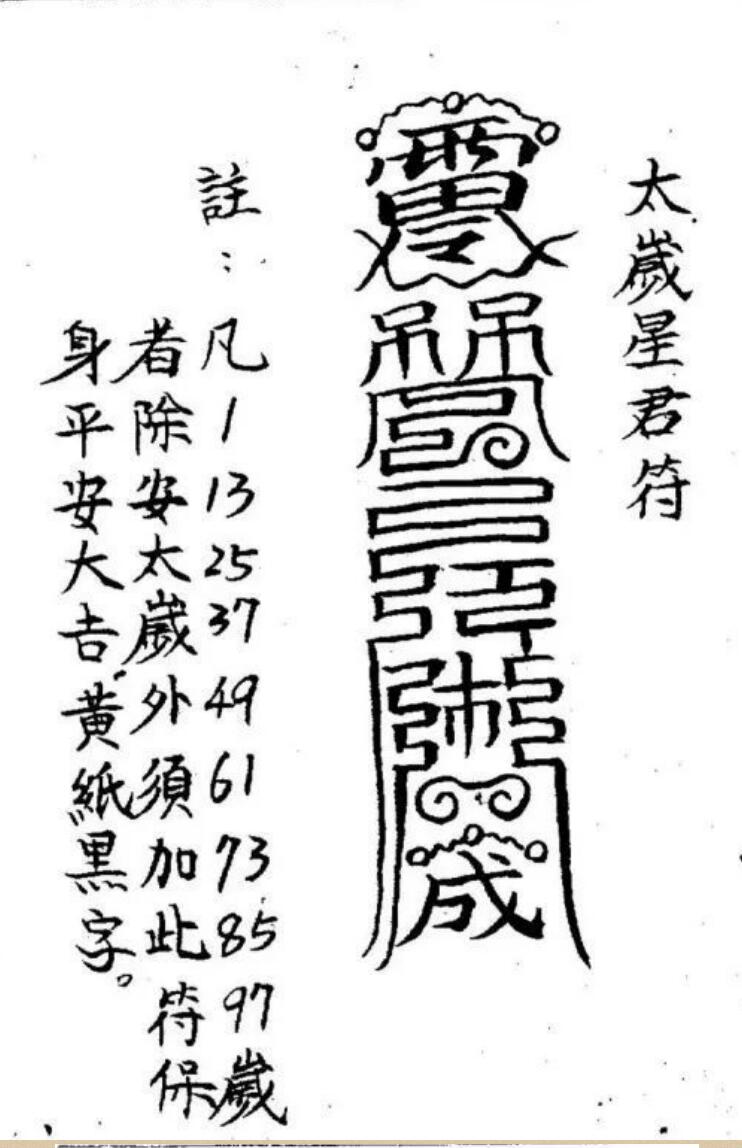 太歲星君符
註：
凡1 13 25 37 49 61 73 85 97歲
者除安太歲外須加此符保
身平安大吉。黃紙黑字。